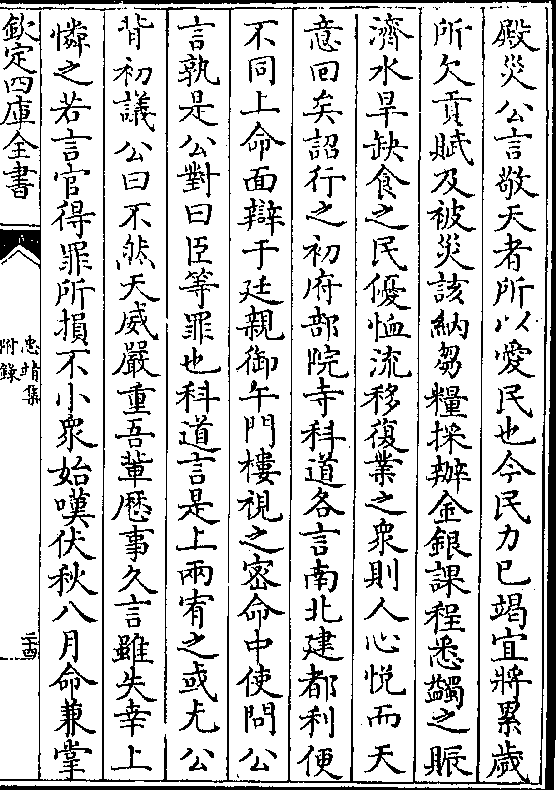 殿災公言敬天者所以愛民也今民力已竭宜將累歲
所欠貢賦及被災該納芻糧採辦金銀課程悉蠲之賑
濟水旱缺食之民優恤流移復業之衆則人心悅而天
意回矣詔行之初府部院寺科道各言南北建都利便
不同上命面辯于廷親御午門樓視之密命中使問公
言孰是公對曰臣等罪也科道言是上兩宥之或尤公
背初議公曰不然天威嚴重吾軰歷事久言雖失幸上
憐之若言官得罪所損不小衆始嘆伏秋八月命兼掌
欽定四庫全書
忠靖集
附錄
二十四